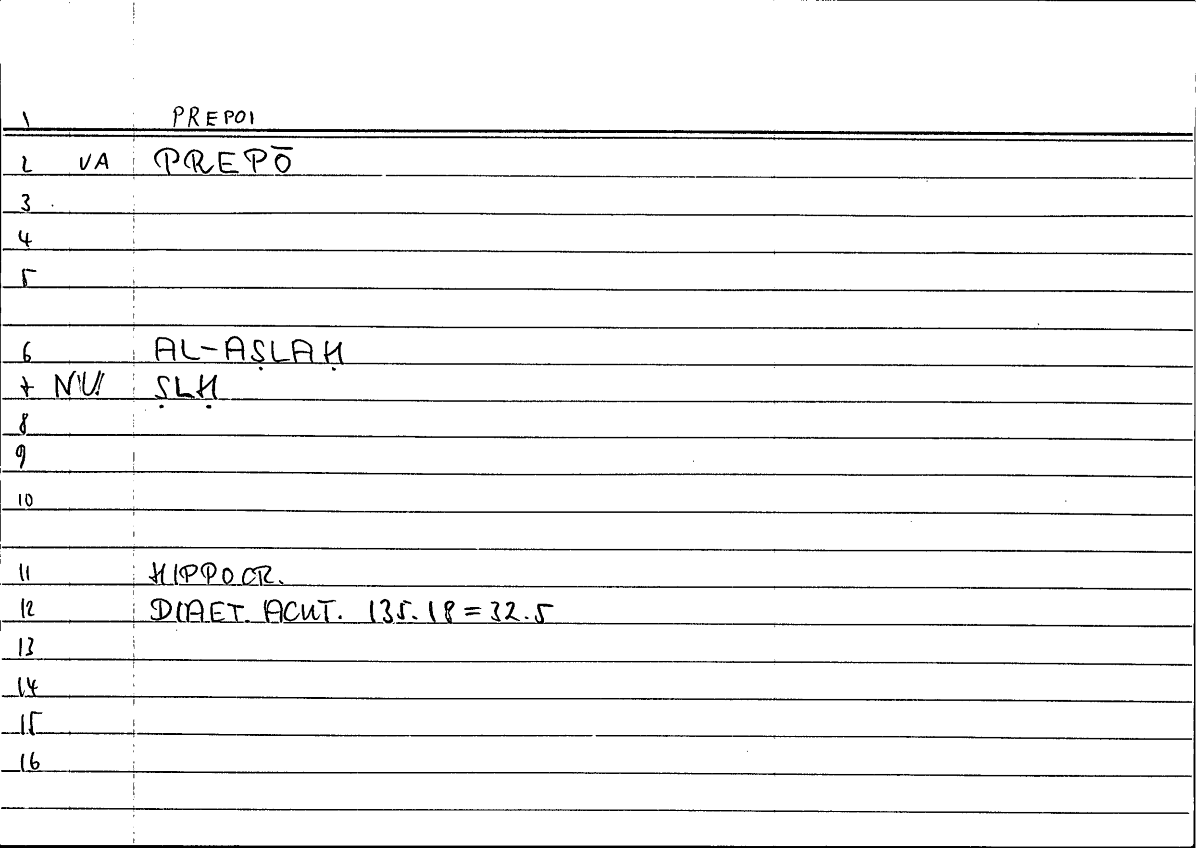 1 PREPOI
2 VA PREPŌ
3
4
5
6 AL-AṢLAḤ
7 NU! ṢLḤ
8
9
10
11 HIPPOCR.
12 DIAET. ACUT. 135.18 = 32.5
13
14
15
16